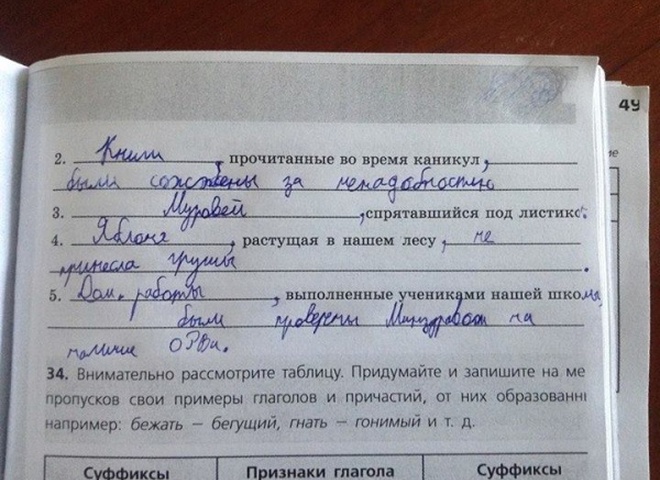 49
2. Книги, прочитанные во время каникул,
были сожжены за ненадобностью
3. Муравей, спрятавшийся под листикс.
4. Яблоня, растущая в нашем лесу, не
принесла грушы.
5. Дом. работы, выполненные учениками нашей школы,
были проверены Минздравом на
наличие ОРВи.
34. Внимательно рассмотрите таблицу. Придумайте и запишите на ме
пропусков свои примеры глаголов и причастий, от них образованн
например: бежать – бегущий, гнать – гонимый и т. д.
Суффиксы Признаки глагола Суффиксы